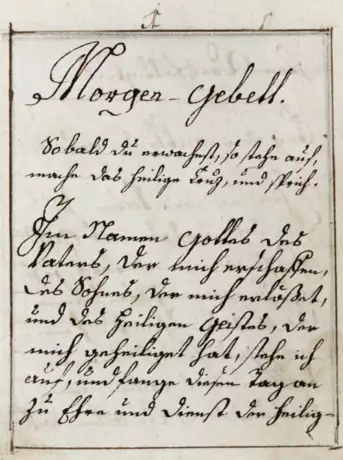 1
Morgen-Gebett.
Sobald du erwachest, so stehe auf,
mache das heilige Creuz, und sprich.
Im Namen Gottes des
Vaters, der mich erschaffen,
des Sohnes, der mich erlößet,
und des heiligen Geistes, der
mich geheiliget hat, stehe ich
auf, und fange diesen Tag an
zu Ehre und Dienst der heilig-